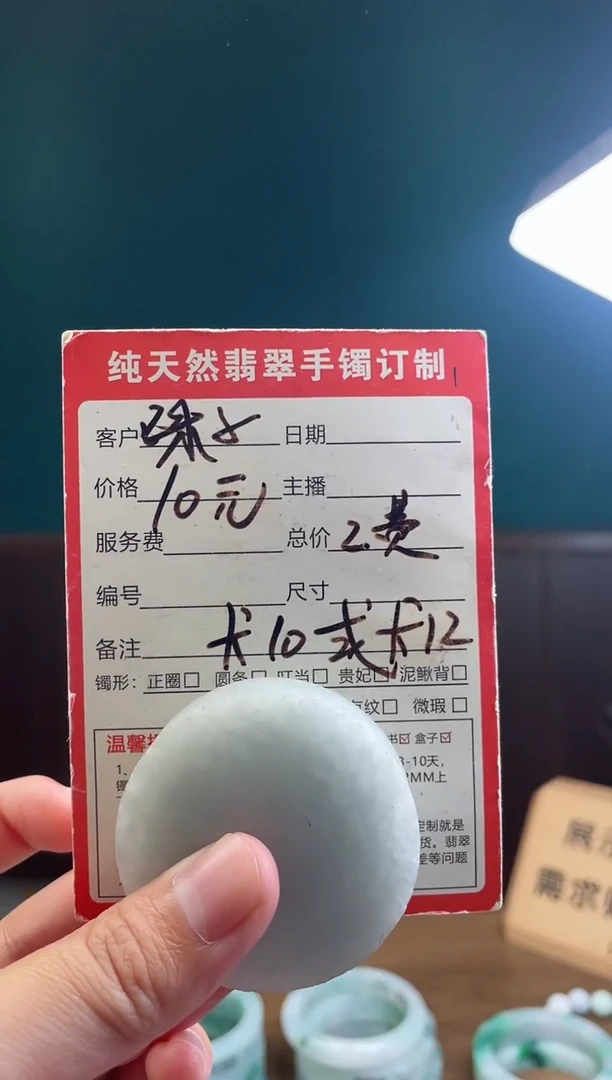 纯天然翡翠手镯订制
客户 珠子 日期
价格 10元 主播
服务费 总价 2.贵
编号 尺寸
备注 卡10或卡12
镯形：正圈□ 圆条□ 叮当□ 贵妃□ 泥鳅背□
纹□ 微瑕□
温馨 书☑ 盒子☑
1、 3-10天，
镯 MM上
定制就是
货。翡翠
差等问题
展示
需求